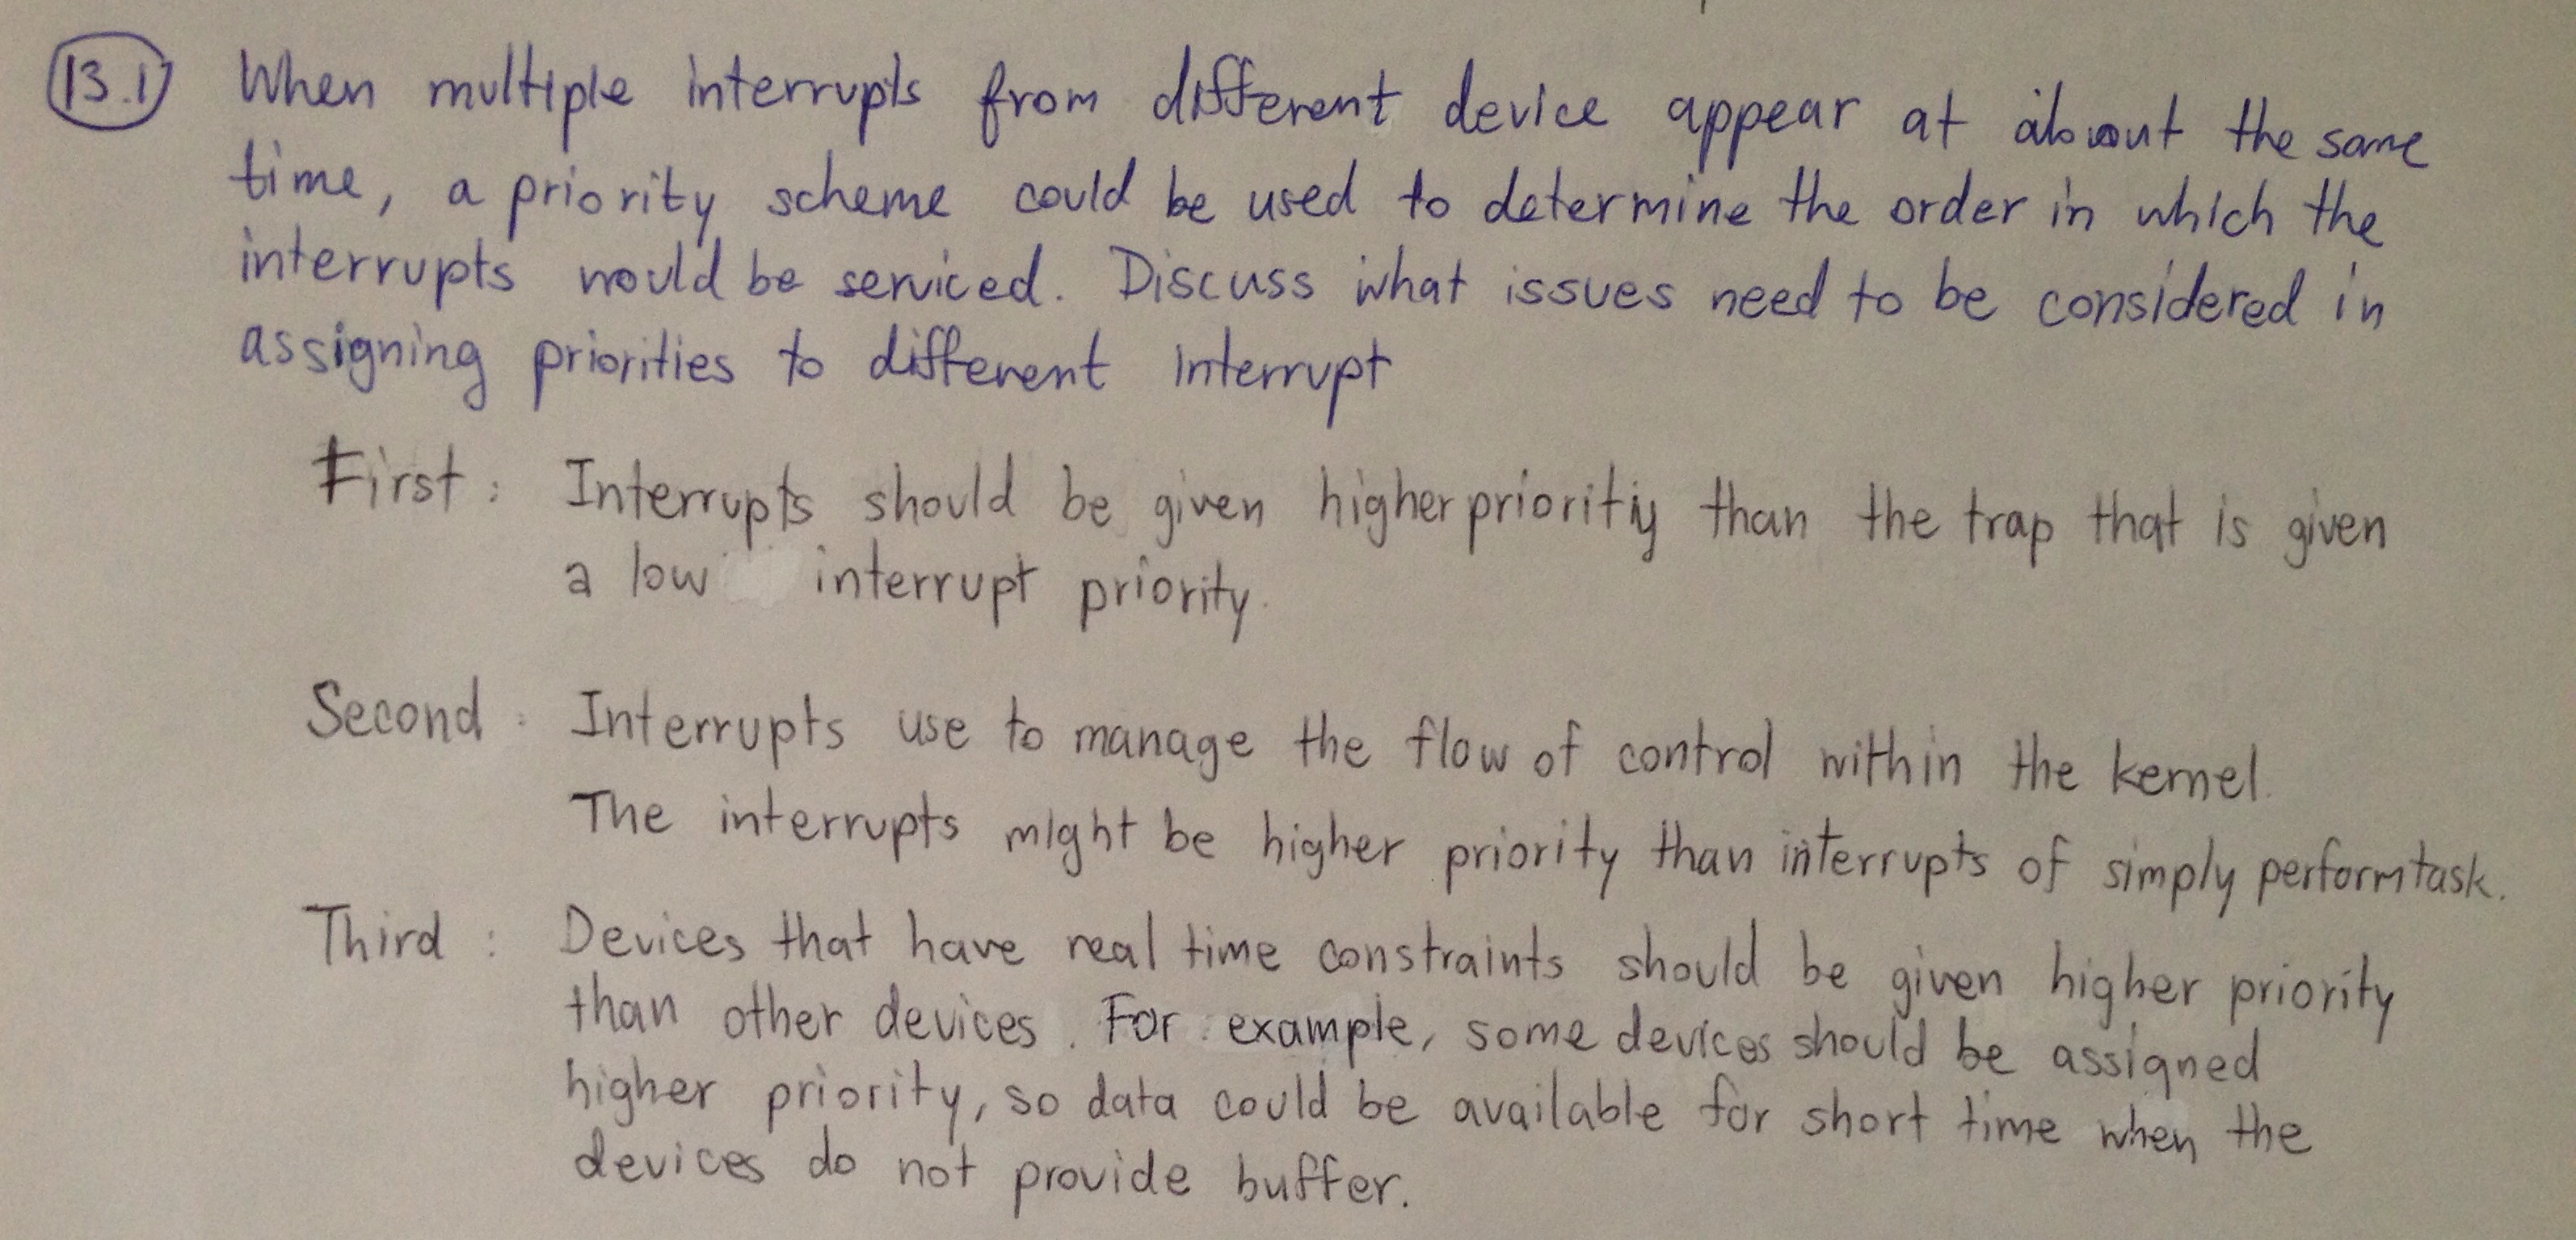 13.1 When multiple interrupts from different device appear at about the same
time, a priority scheme could be used to determine the order in which the
interrupts would be serviced. Discuss what issues need to be considered in
assigning priorities to different interrupt
First: Interrupts should be given higher priority than the trap that is given
a low interrupt priority.
Second: Interrupts use to manage the flow of control within the kernel.
The interrupts might be higher priority than interrupts of simply perform task.
Third: Devices that have real time constraints should be given higher priority
than other devices. For example, some devices should be assigned
higher priority, so data could be available for short time when the
devices do not provide buffer.